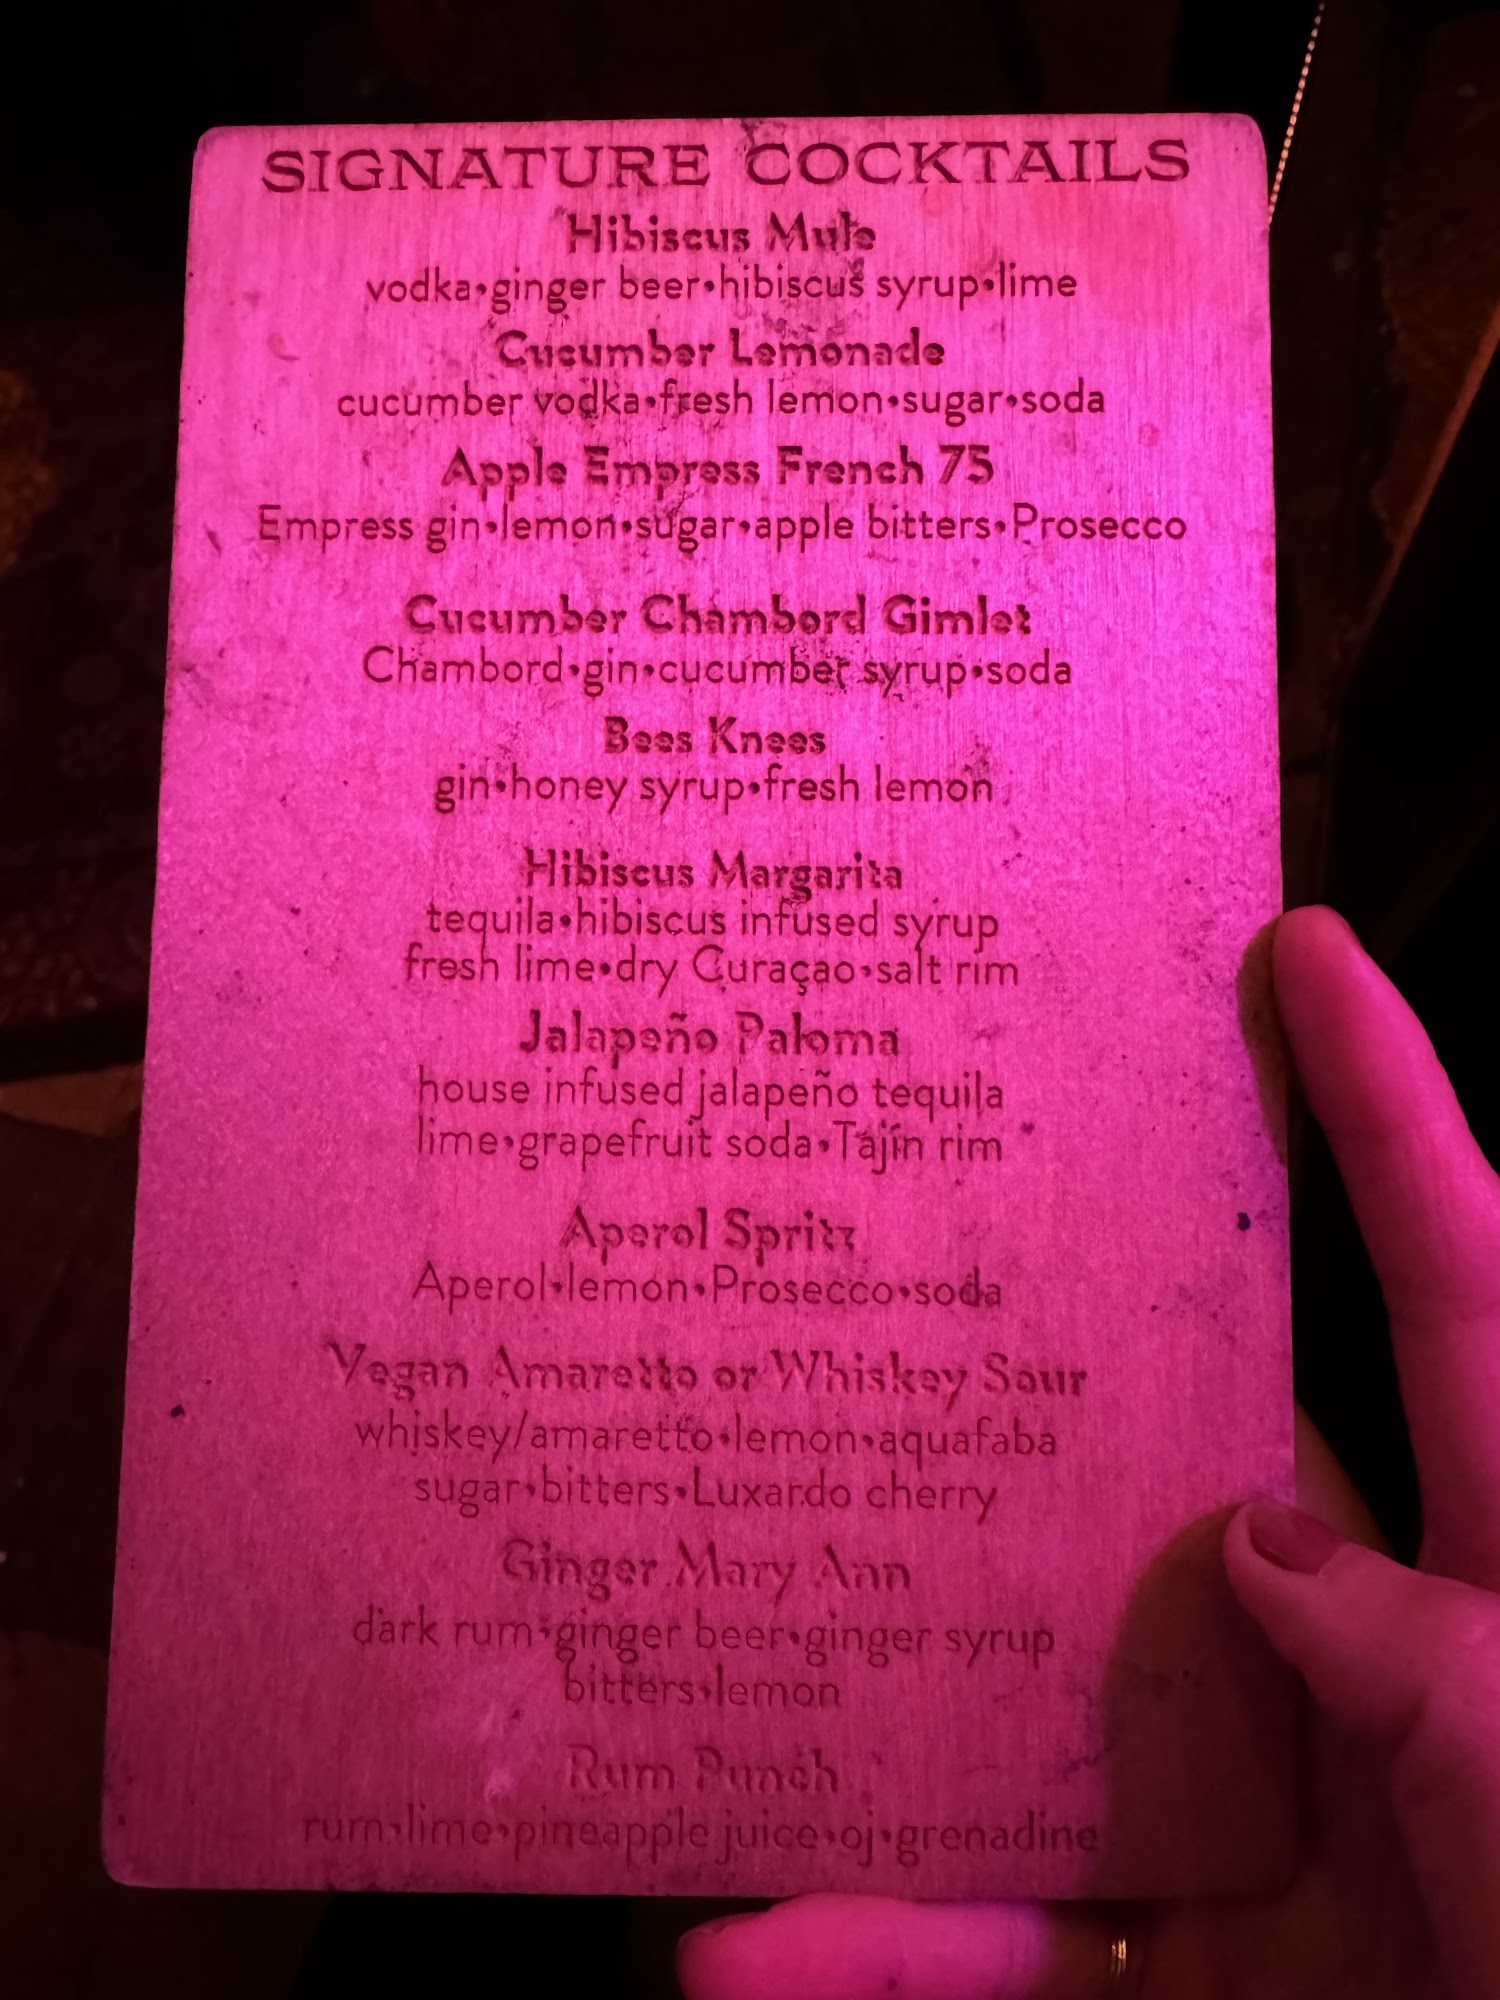 SIGNATURE COCKTAILS
Hibiscus Mule
vodka•ginger beer•hibiscus syrup•lime
Cucumber Lemonade
cucumber vodka•fresh lemon•sugar•soda
Apple Empress French 75
Empress gin•lemon•sugar•apple bitters•Prosecco
Cucumber Chambord Gimlet
Chambord•gin•cucumber syrup•soda
Bees Knees
gin•honey syrup•fresh lemon
Hibiscus Margarita
tequila•hibiscus infused syrup
fresh lime•dry Curaçao•salt rim
Jalapeño Paloma
house infused jalapeño tequila
lime•grapefruit soda•Tajín rim
Aperol Spritz
Aperol•lemon•Prosecco•soda
Vegan Amaretto or Whiskey Sour
whiskey/amaretto•lemon•aquafaba
sugar•bitters•Luxardo cherry
Ginger Mary Ann
dark rum•ginger beer•ginger syrup
bitters•lemon
Rum Punch
rum•lime•pineapple juice•oj•grenadine